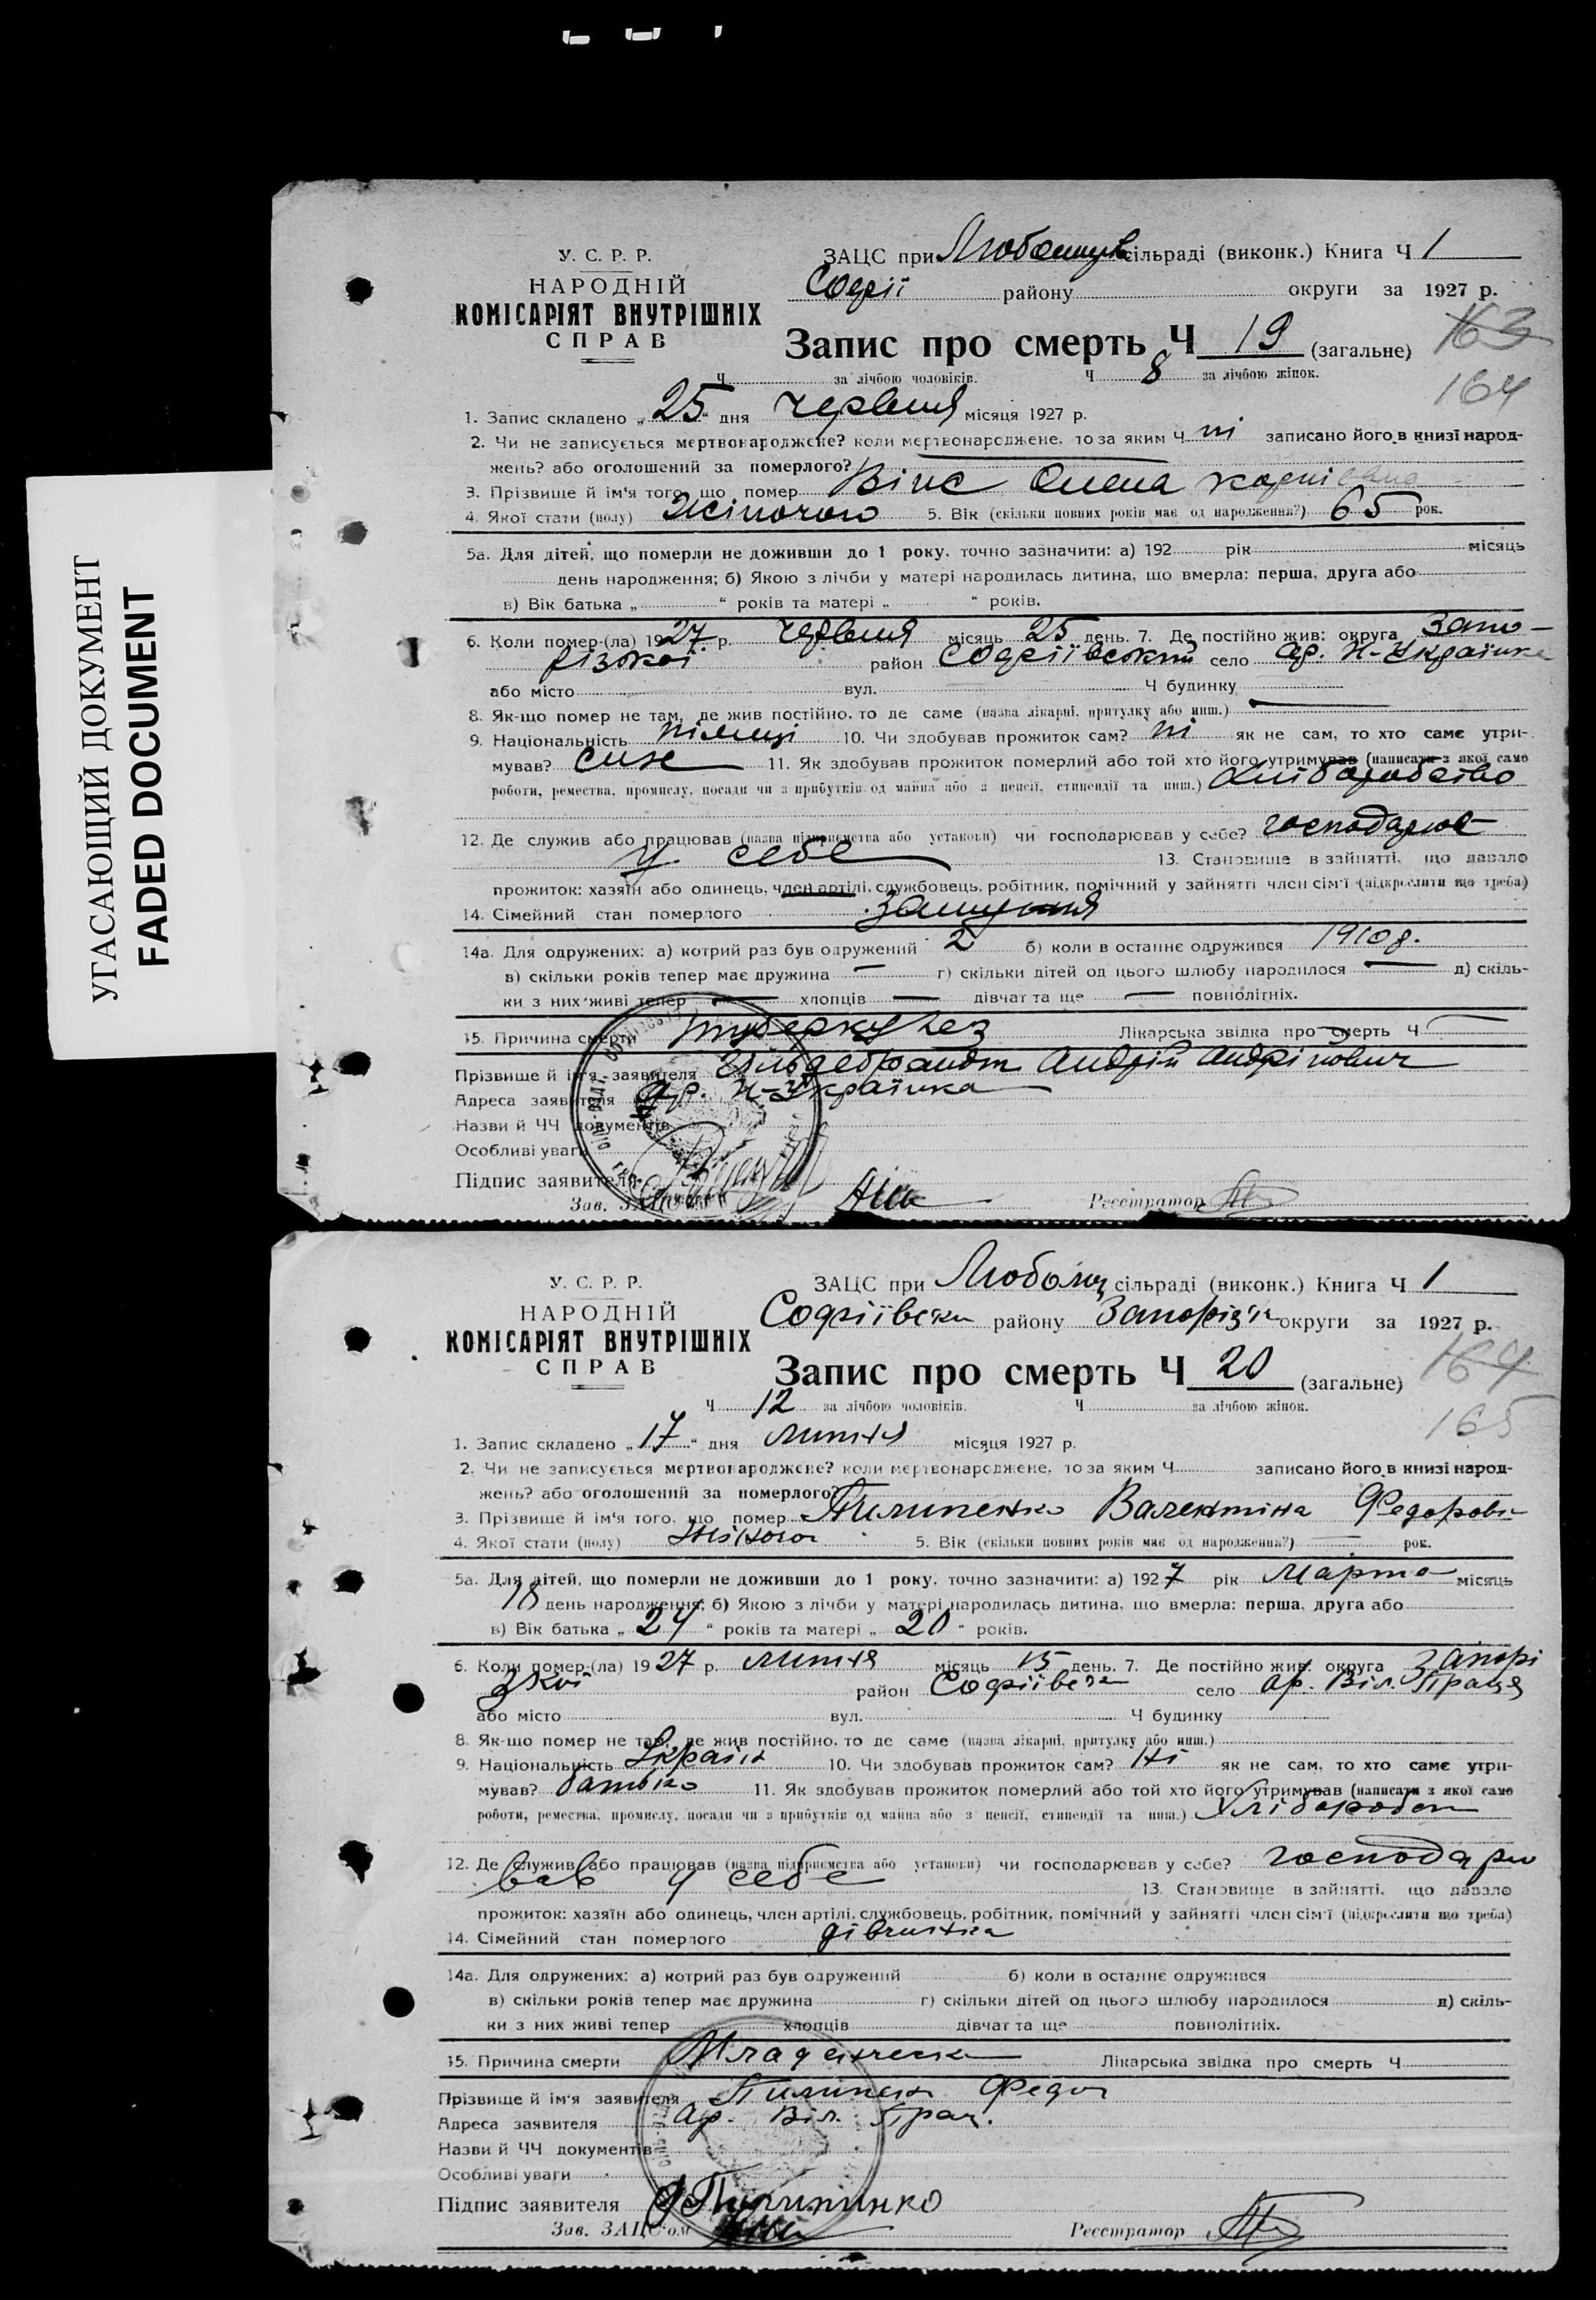 УГАСАЮЩИЙ ДОКУМЕНТ
FADED DOCUMENT
У. С. Р. Р.
НАРОДНІЙ
КОМІСАРІЯТ ВНУТРІШНІХ
СПРАВ
ЗАЦС при Любомирів сільраді (виконк.) Книга Ч 1
Софії району округи за 1927 р.
Запис про смерть Ч 19 (загальне) 163
164
Ч за лічбою чоловіків. Ч 8 за лічбою жінок.
1. Запис складено „25“ дня червня місяця 1927 р.
2. Чи не записується мертвонароджене? коли мертвонароджене, то за яким Ч ні записано його в книзі народ-
жень? або оголошений за померлого?
3. Прізвище й ім'я того, що помер Вінс Олена Карнівана
4. Якої стати (полу) Жіночого 5. Вік (скільки повних років має од народження?) 65 рок.
5а. Для дітей, що померли не доживши до 1 року, точно зазначити: а) 192 рік місяць
день народження; б) Якою з лічби у матері народилась дитина, що вмерла: перша, друга або
в) Вік батька „ “ років та матері „ “ років.
6. Коли помер-(ла) 1927 р. червня місяць 25 день. 7. Де постійно жив: округа Запо-
різької район Софіївський село ар. Н-Українка
або місто вул. Ч будинку
8. Як-що помер не там, де жив постійно, то де саме (назва лікарні, притулку або инш.)
9. Національність німці 10. Чи здобував прожиток сам? ні як не сам, то хто саме утри-
мував? син 11. Як здобував прожиток померлий або той хто його утримував (написати з якої саме
роботи, ремества, промислу, посади чи з прибутків од майна або з пенсії, стипендії та инш.) хліборобство
12. Де служив або працював (назва підприємства або установи) чи господарював у себе? господарює
у себе 13. Становище в зайнятті, що давало
прожиток: хазяїн або одинець, член артілі, службовець, робітник, помічний у зайнятті член сім'ї (підкреслити що треба)
14. Сімейний стан померлого замужня
14а. Для одружених: а) котрий раз був одружений 2 б) коли в останнє одружився 1910 р.
в) скільки років тепер має дружина — г) скільки дітей од цього шлюбу народилося — д) скіль-
ки з них живі тепер — хлопців — дівчат та ще — повнолітніх.
15. Причина смерти туберкульоз Лікарська звідка про смерть Ч
Прізвище й ім'я заявителя Гільдебрандт Андрій Андрійович
Адреса заявителя ар. Н-Українка
Назви й ЧЧ документів
Особливі уваги
Підпис заявителя
Зав. ЗАЦС'ом Реєстратор
У. С. Р. Р.
НАРОДНІЙ
КОМІСАРІЯТ ВНУТРІШНІХ
СПРАВ
ЗАЦС при Любомир сільраді (виконк.) Книга Ч 1
Софіївськ району Запоріз'к округи за 1927 р.
Запис про смерть Ч 20 (загальне) 164
165
Ч 12 за лічбою чоловіків. Ч за лічбою жінок.
1. Запис складено „17“ дня липня місяця 1927 р.
2. Чи не записується мертвонароджене? коли мертвонароджене, то за яким Ч записано його в книзі народ-
жень? або оголошений за померлого?
3. Прізвище й ім'я того, що помер Пилипенко Валентіна Федоровн
4. Якої стати (полу) Жіночог 5. Вік (скільки повних років має од народження?) рок.
5а. Для дітей, що померли не доживши до 1 року, точно зазначити: а) 1927 рік марта місяць
18 день народження; б) Якою з лічби у матері народилась дитина, що вмерла: перша, друга або
в) Вік батька „24“ років та матері „20“ років.
6. Коли помер-(ла) 1927 р. липня місяць 15 день. 7. Де постійно жив: округа Запорі
зкої район Софіївськ село ар. Віл. Праця
або місто вул. Ч будинку
8. Як-що помер не там, де жив постійно, то де саме (назва лікарні, притулку або инш.)
9. Національність Україн 10. Чи здобував прожиток сам? Ні як не сам, то хто саме утри-
мував? батько 11. Як здобував прожиток померлий або той хто його утримував (написати з якої саме
роботи, ремества, промислу, посади чи з прибутків од майна або з пенсії, стипендії та инш.) Хлібороб
12. Де служив або працював (назва підприємства або установи) чи господарював у себе? господарю
вав у себе 13. Становище в зайнятті, що давало
прожиток: хазяїн або одинець, член артілі, службовець, робітник, помічний у зайнятті член сім'ї (підкреслити що треба)
14. Сімейний стан померлого дівчинка
14а. Для одружених: а) котрий раз був одружений б) коли в останнє одружився
в) скільки років тепер має дружина г) скільки дітей од цього шлюбу народилося д) скіль-
ки з них живі тепер хлопців дівчат та ще повнолітніх.
15. Причина смерти Младенческ Лікарська звідка про смерть Ч
Прізвище й ім'я заявителя Пилипен Федог
Адреса заявителя ар. Віл. Прац.
Назви й ЧЧ документів
Особливі уваги
Підпис заявителя Ф Пилипинко
Зав. ЗАЦС'ом Реєстратор